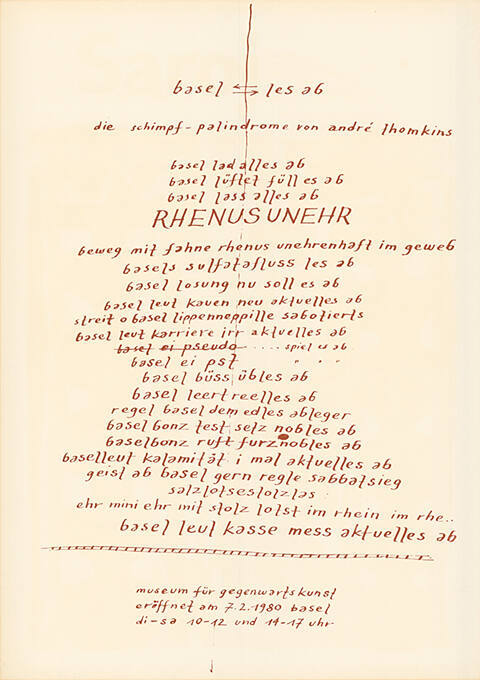 basel ⇄ les ab
die schimpf-palindrome von andré thomkins
basel lad alles ab
basel lüftet füll es ab
basel lass alles ab
RHENUS UNEHR
beweg mit fahne rhenus unehrenhaft im geweb
basels sulfatafluss les ab
basel losung nu soll es ab
basel leut kauen neu aktuelles ab
streit o basel lippenneppille sabotierts
basel leut karriere irr aktuelles ab
basel ei pseudo .... spiel es ab
basel ei pst " " "
basel büss übles ab
basel leert reelles ab
regel basel dem edles ableger
basel bonz lest selz nobles ab
baselbonz ruft furznobles ab
baselleut kalamität i mal aktuelles ab
geist ab basel gern regle sabbatsieg
salzlotseslolzlas
ehr mini ehr mit stolz lotst im rhein im rhe..
basel leut kasse mess aktuelles ab
museum für gegenwartskunst
eröffnet am 7.2.1980 basel
di-sa 10-12 und 14-17 uhr